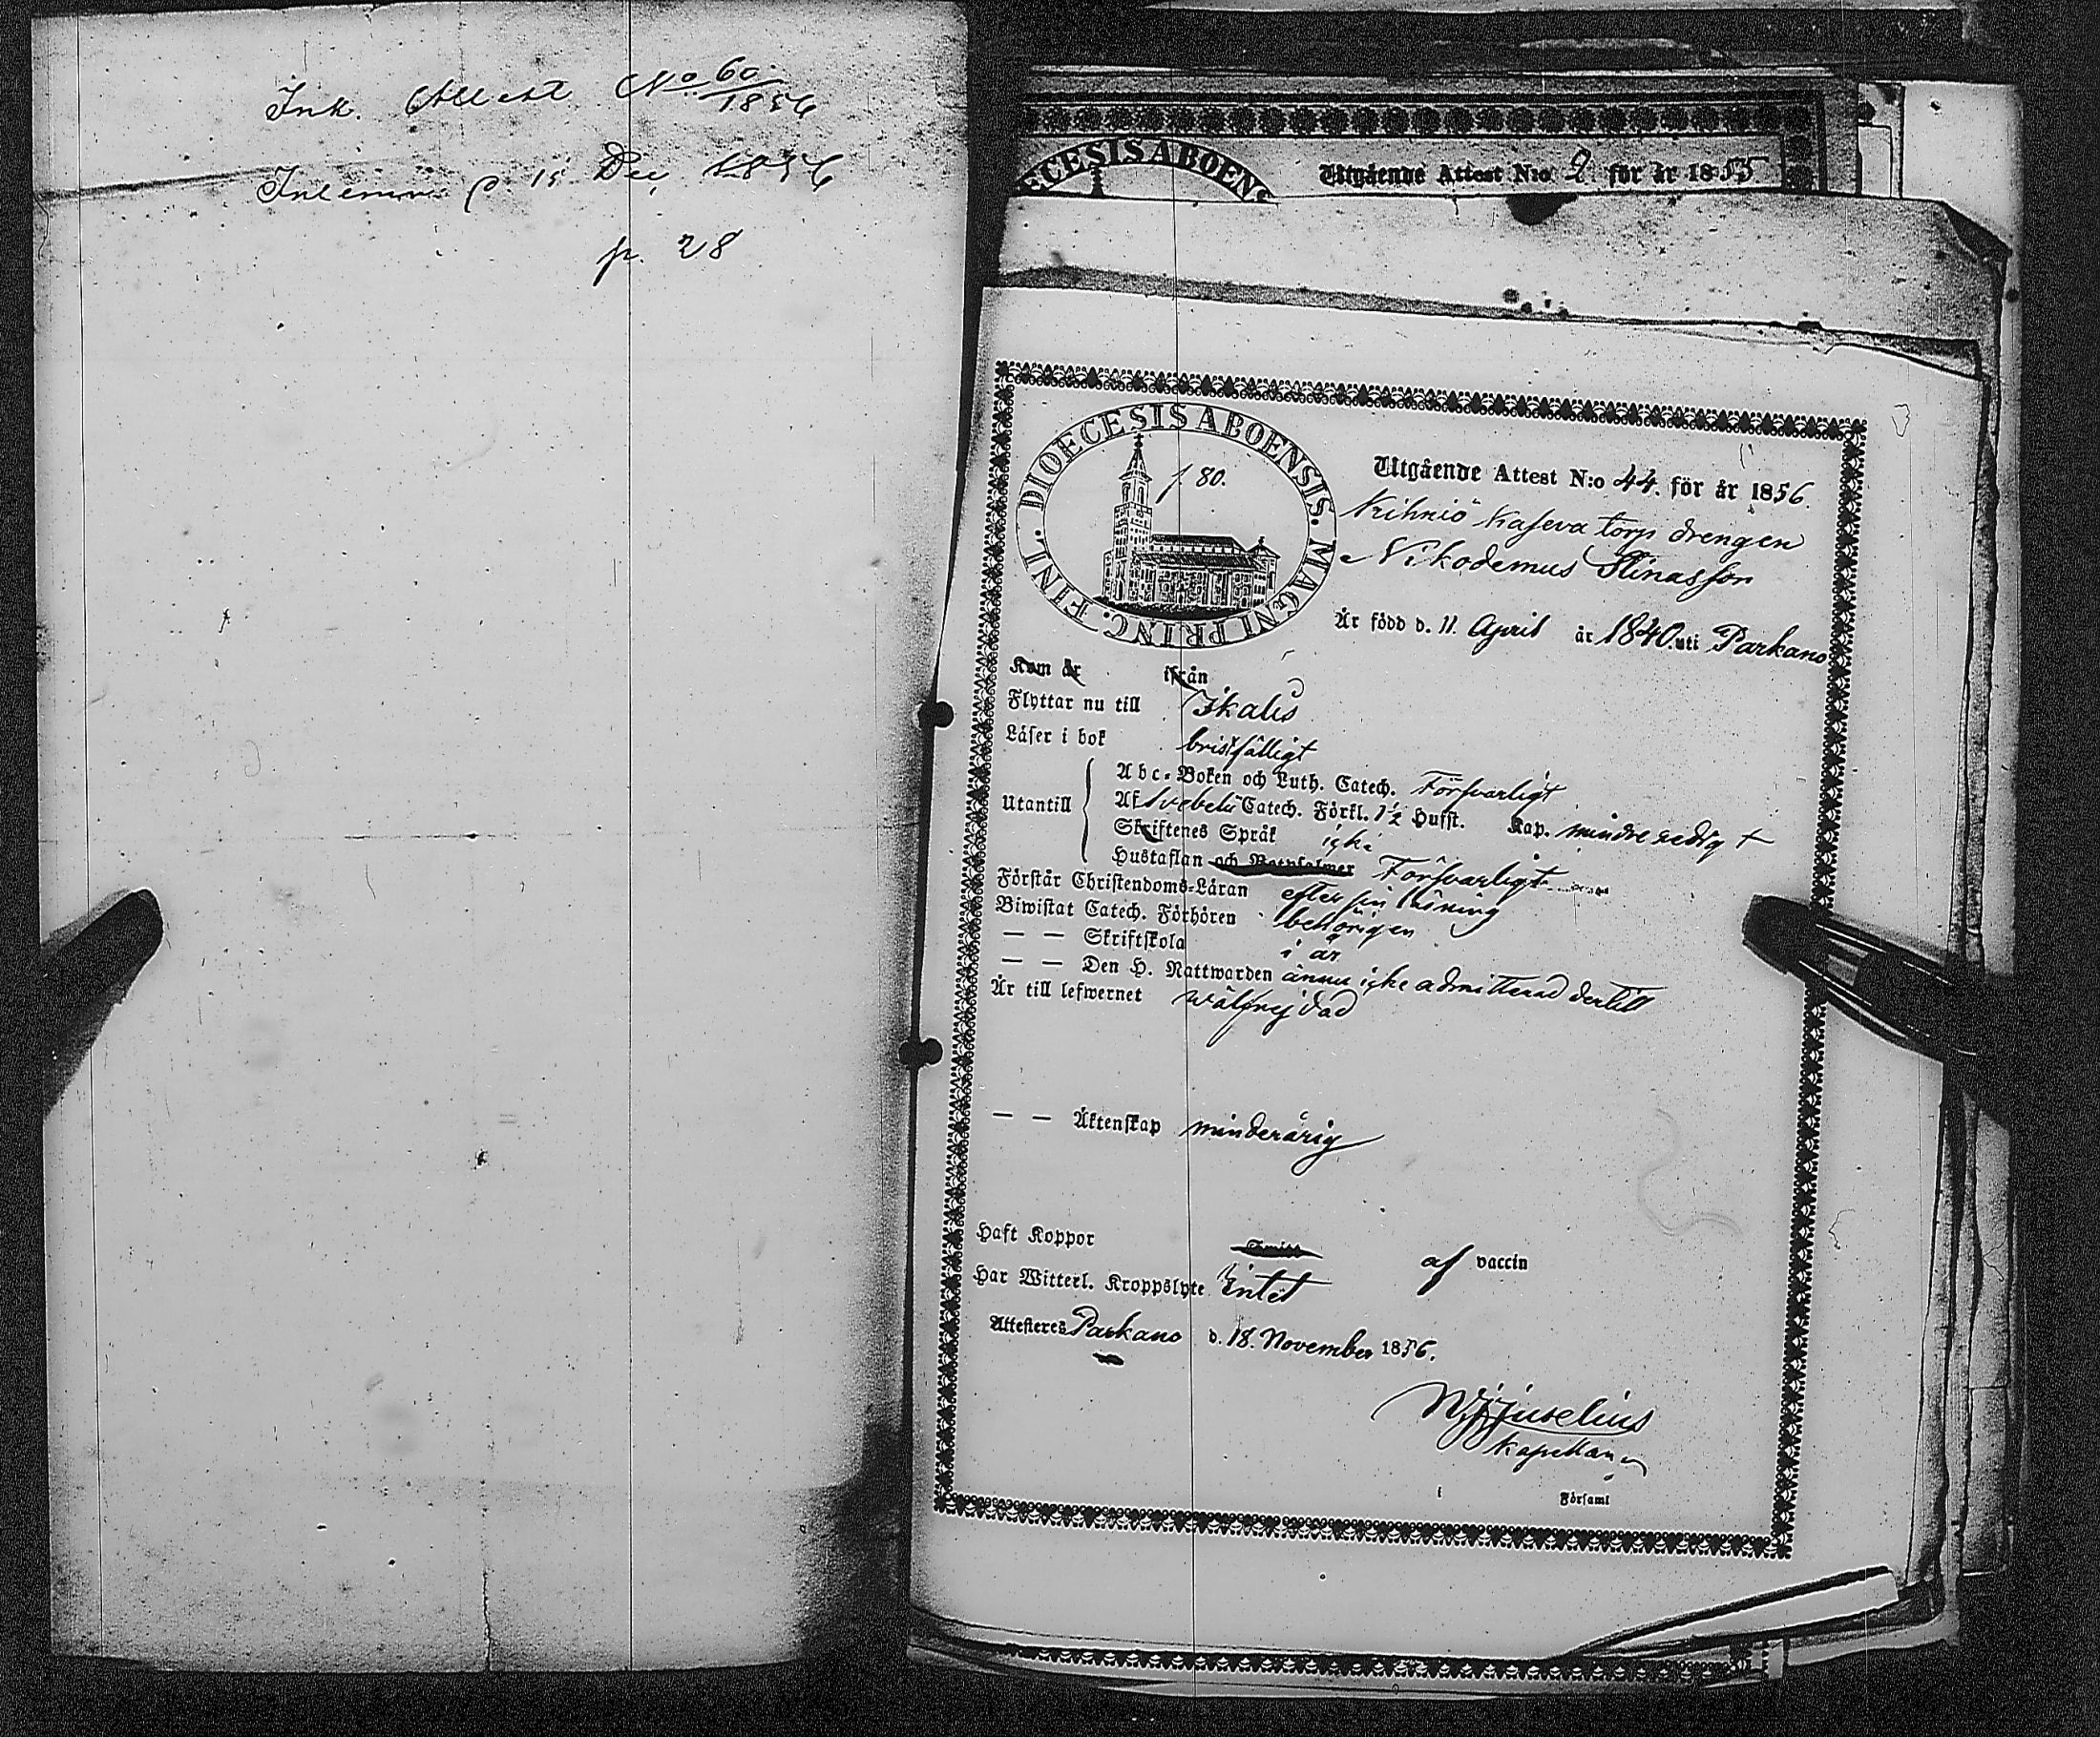 Ink. Attest No 60/1856
Inlemn. p 15 Dec 1856
p. 28
DIOECESIS ABOENS
Utgående Attest N:o 2 för år 1855
DIOECESIS ABOENSIS. MAGNI PRINC. FINL.
p. 80.
Utgående Attest N:o 44. för år 1856.
Kihniö Kaseva torp drengen
Nikodemus Stinasson
Är född d. 11. April år 1840. uti Parkano
Kom år ifrån
Flyttar nu till Ikalis
Läser i bok bristfälligt
Utantill
Abc-Boken och Luth. Catech. Försvarligt
Af Svebelii Catech. Förkl. 1½ Hufst. Kap. mindre redigt
Skriftenes Språk icke
Hustaflan och Botpsalmer Försvarligt
Förstår Christendoms-Läran efter sin läsning
Biwistat Catech. Förhören behörigen
— — Skriftskola i år
— — Den H. Nattwarden ännu icke admitterad dertill
Är till lefwernet wälfrejdad
— — Äktenskap minderårig
Haft Koppor af vaccin
Har Witterl. Kroppslyte Intet
Attesteres Parkano d. 18. November 1856.
Juselius
Kapellan
i Församl